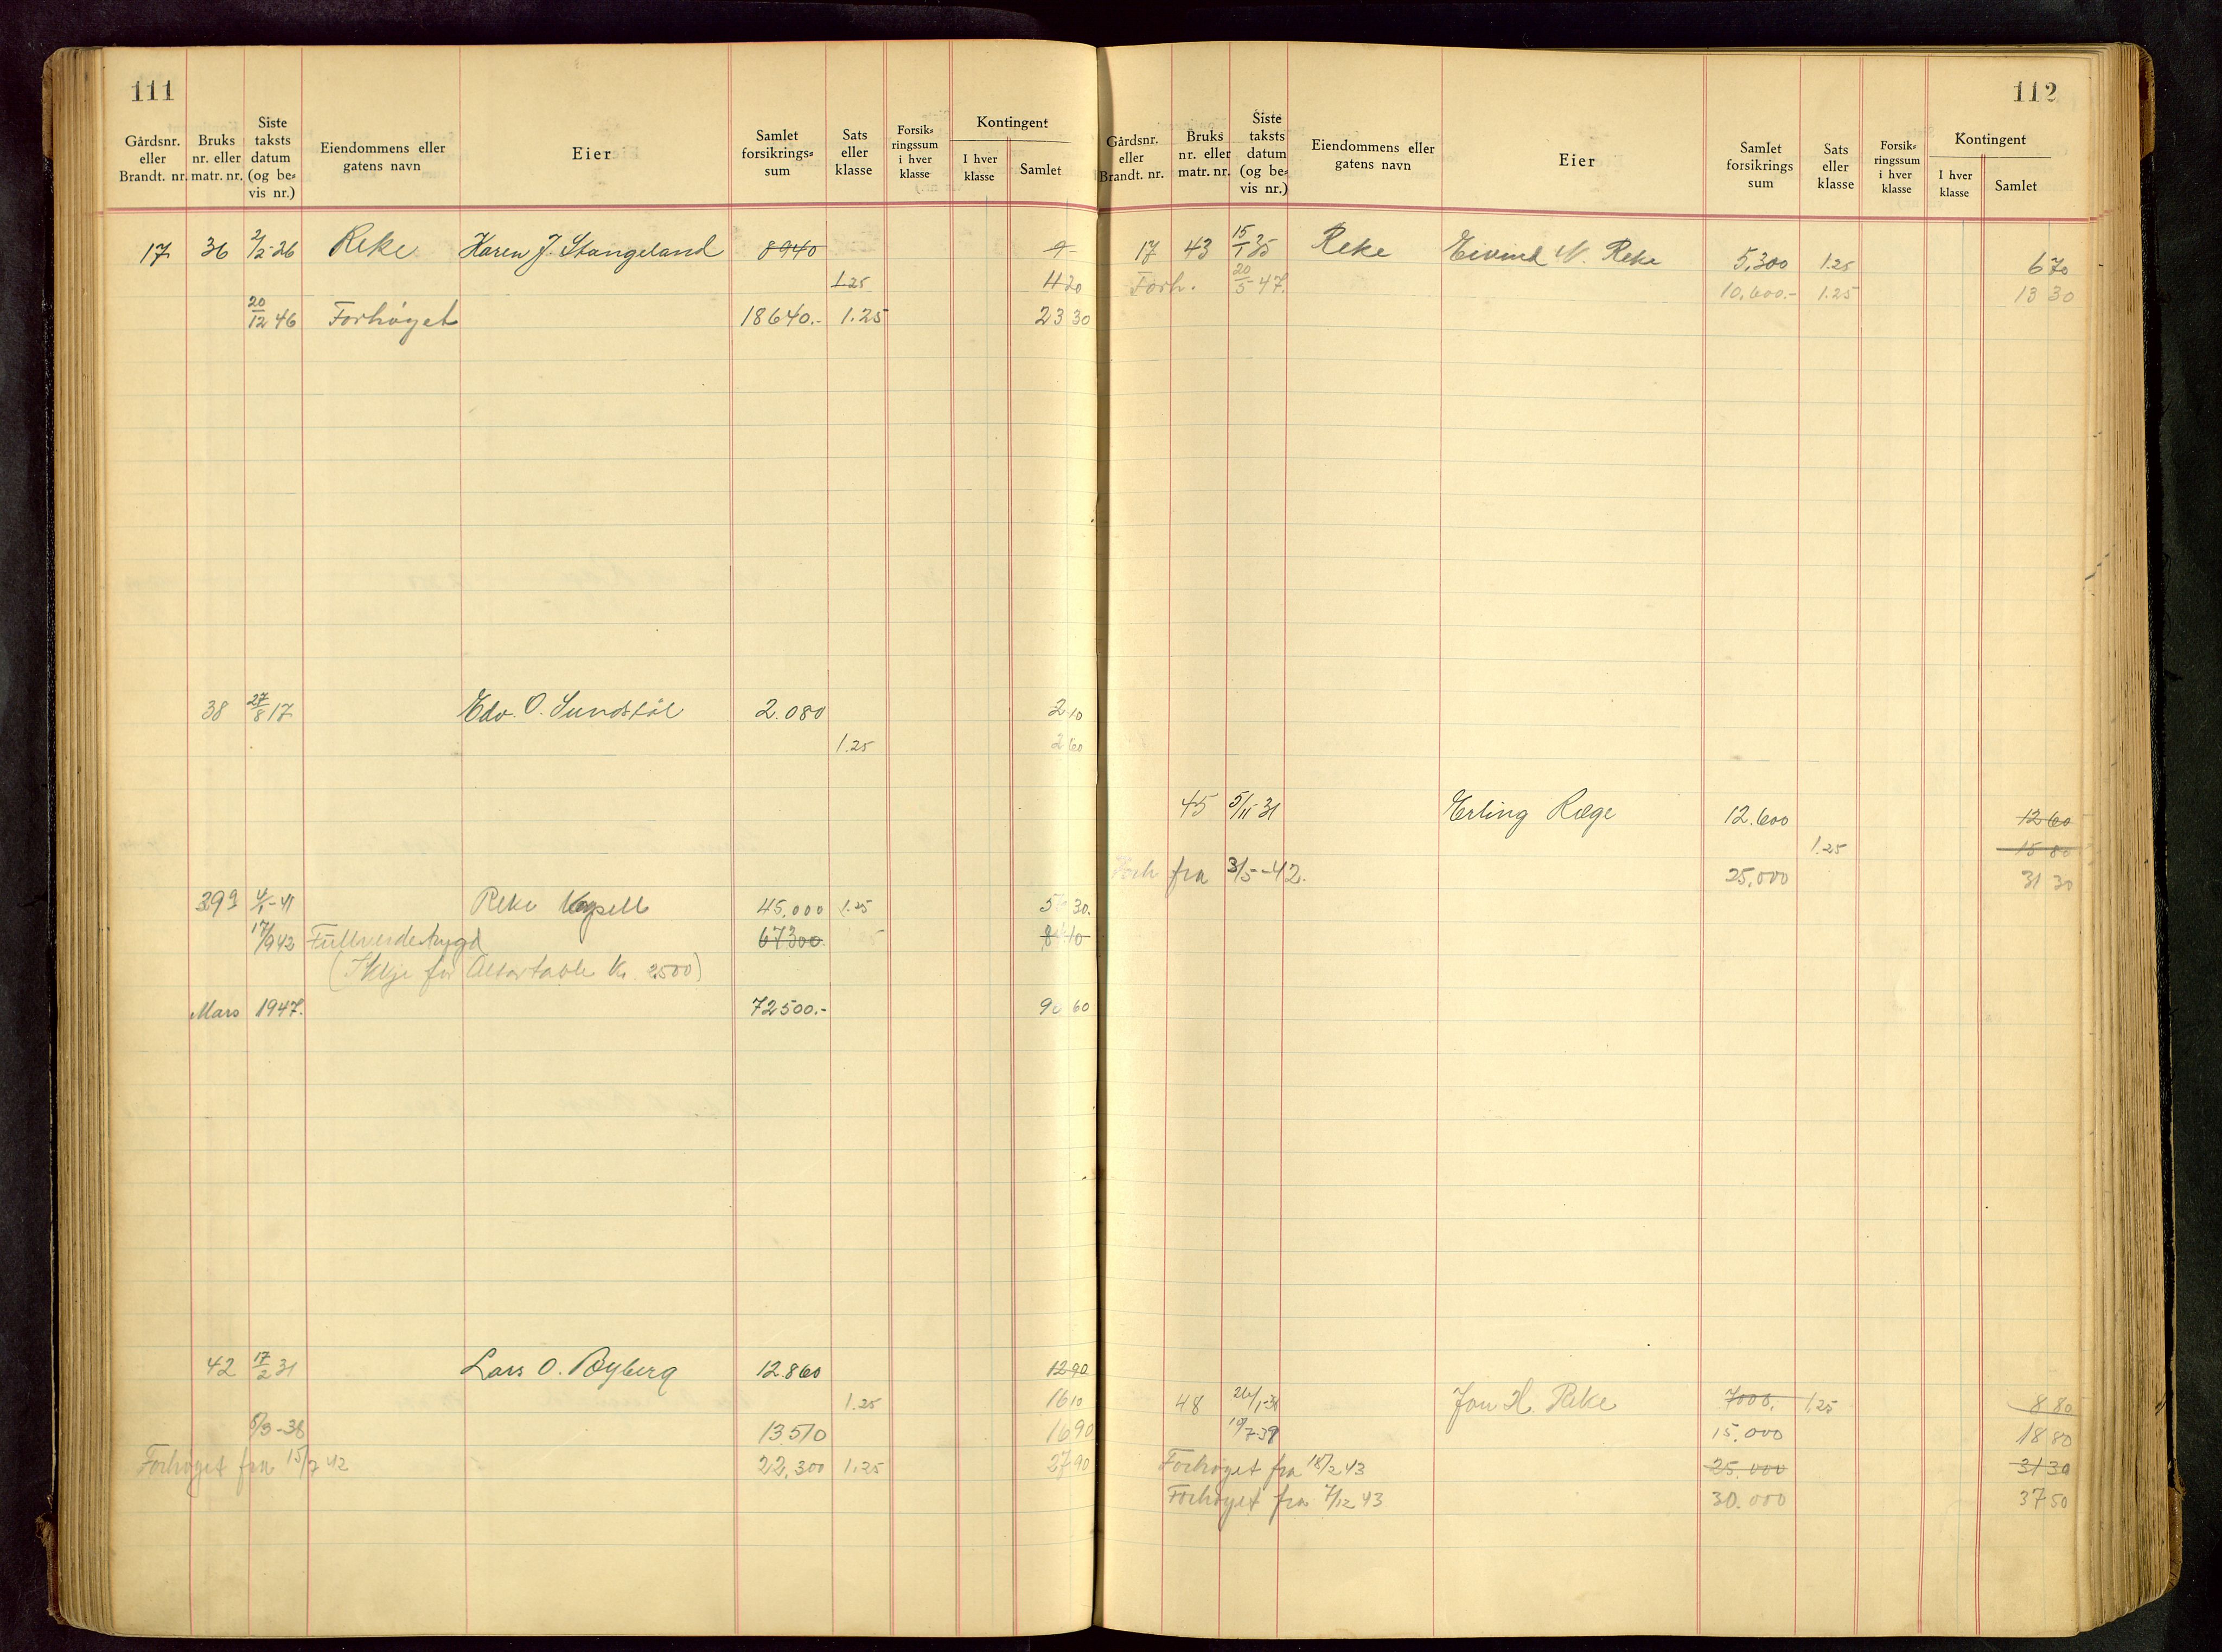 111
Gårdsnr. eller Brandt. nr. Bruks nr. eller matr. nr. Siste taksts datum (og be= vis nr.) Eiendommens eller gatens navn Eier Samlet forsikrings= sum Sats eller klasse Forsik= ringssum i hver klasse Kontingent I hver klasse Samlet
17 36 2/2-26 Reke Karen J. Stangeland 8940 9-
1.25 11 20
20/12 46 Forhøyet 18640.- 1.25 23 30
38 27/8 17 Edv. O. Sundstöl 2.080 2 10
1.25 2 60
39 4/1-41 Reke Kapell 45,000 1.25 30.
17/9 43 Fullverdetrygd 67300
(Ikkje for Altartavle Kr. 2500)
Mars 1947. 72500.- 90 60
42 17/2 31 Lars O. Byberg 12.860 12 90
1.25 16 10
8/3-38 13510 16 90
Forhøyet fra 15/7 42 22,300 1.25 27 90
112
Gårdsnr. eller Brandt. nr. Bruks nr. eller matr. nr. Siste taksts datum (og be= vis nr.) Eiendommens eller gatens navn Eier Samlet forsikrings sum Sats eller klasse Forsik= ringssum i hver klasse Kontingent I hver klasse Samlet
17 43 15/1 35 Reke Eivind N. Reke 5,300 1.25 6 70
Forh. 20/5-47. 10,600.- 1.25 13 30
45 5/11-31 Erling Rege 12.600 12 60
1.25 15 80
Forh fra 3/5-42. 25,000 31 30
48 26/1-31 Jon H. Reke 7000. 1.25 8 80
10/7-39 15.000 18 80
Forhøyet fra 18/2 43 25.000 31 30
Forhøyet fra 7/12 43 30.000 37 50